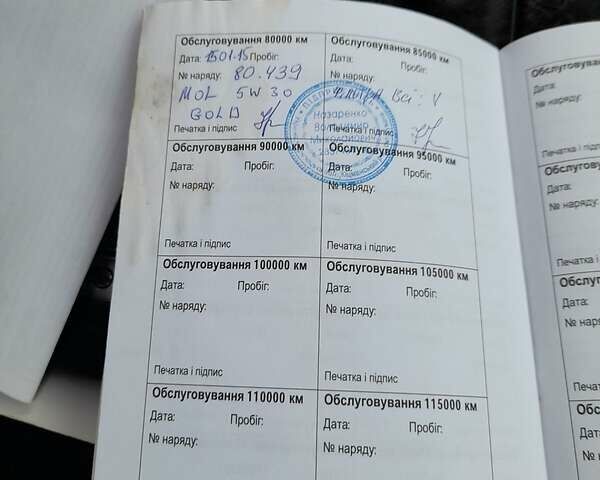 Обслуговування 80000 км
Дата: 15.01.15 Пробіг:
№ наряду: 80.439
MOL 5W30
GOLD
Печатка і підпис
Обслуговування 85000 км
Дата: Пробіг:
№ наряду:
Всі: V
Печатка і підпис
Назаренко
Володимир
Миколайович
Обслуговування 90000 км
Дата: Пробіг:
№ наряду:
Печатка і підпис
Обслуговування 95000 км
Дата: Пробіг:
№ наряду:
Печатка і підпис
Обслуговування 100000 км
Дата: Пробіг:
№ наряду:
Печатка і підпис
Обслуговування 105000 км
Дата: Пробіг:
№ наряду:
Печатка і підпис
Обслуговування 110000 км
Дата: Пробіг:
№ наряду:
Обслуговування 115000 км
Дата: Пробіг:
№ наряду:
Обслуговування
Дата:
№ наряду:
Печатка і
Обслуговування
Дата:
№ наряду:
Печатка і
Обслуговування
Дата:
№ наря
Печатка і
Обслуговування
Дата:
№ наряд